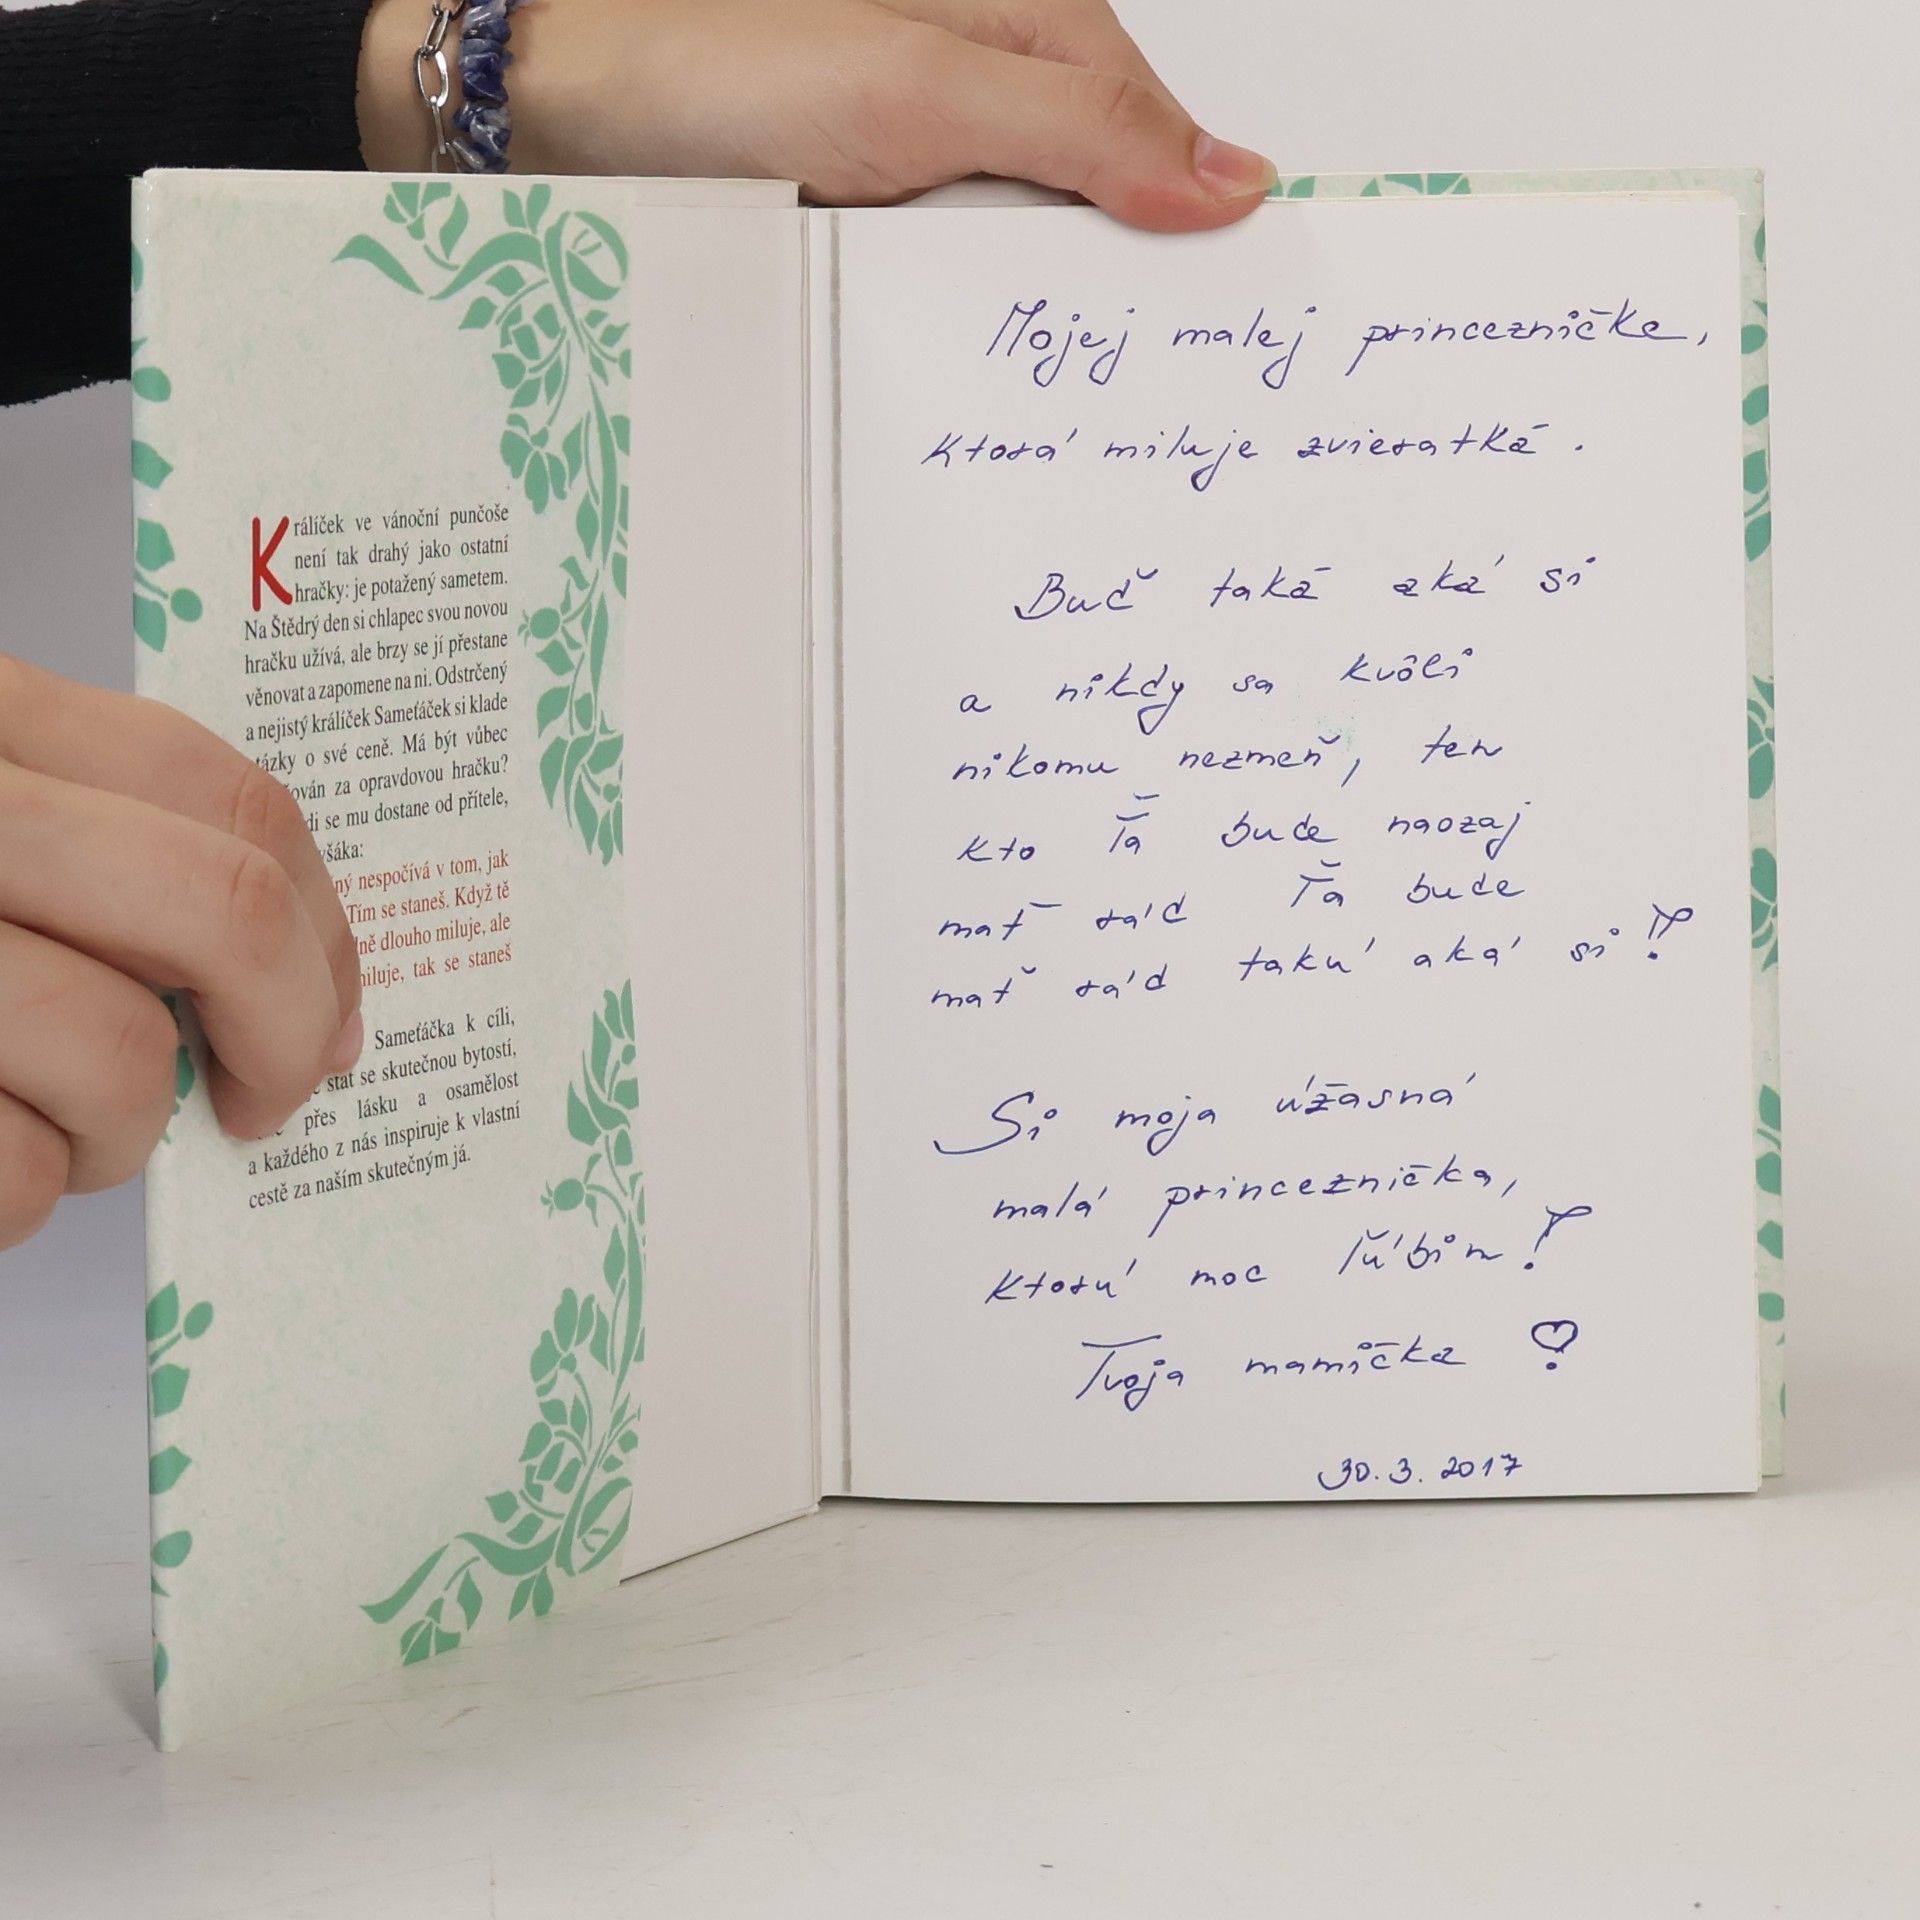 Králíček ve vánoční punčoše
není tak drahý jako ostatní
hračky: je potažený sametem.
Na Štědrý den si chlapec svou novou
hračku užívá, ale brzy se jí přestane
věnovat a zapomene na ni. Odstrčený
a nejistý králíček Sameťáček si klade
o své ceně. Má být vůbec
za opravdovou hračku?
se mu dostane od přítele,
nespočívá v tom, jak
Tím se staneš. Když tě
dlouho miluje, ale
miluje, tak se staneš
Sameťáčka k cíli,
stat se skutečnou bytostí,
přes lásku a osamělost
a každého z nás inspiruje k vlastní
cestě za naším skutečným já.
Mojej malej princezničke,
ktorá miluje zvieratká.
Buď taká aká si
a nikdy sa kvôli
nikomu nezmeň, ten
kto Ťa bude naozaj
mať rád Ťa bude
mať rád takú aká si!
Si moja úžasná
malá princeznička,
ktorú moc ľúbim!
Tvoja mamička ♡
30.3.2017